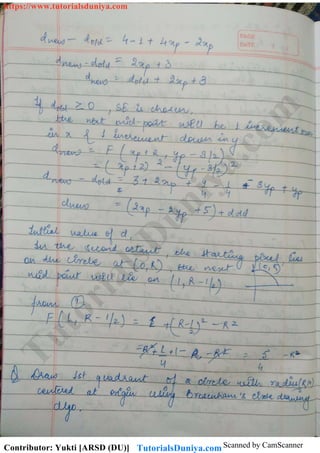 https://www.tutorialsduniya.com
PAGE
DATE
dnew - dold = 4-1 + 4xp - 2xp
dnew - dold = 2xp + 3
dnew = dold + 2xp + 3
If dold ≥ 0, SE is chosen,
the next mid-point will be 1 increment
in x & 1 increment down in y
dnew = F (xp+2, yp - 3/2)
= (xp+2)² - (yp - 3/2)²
dnew - dold = 3 + 2xp + 9/4 - 1/4 - 3yp + yp
dnew = (2xp - 2yp + 5) + dold
Initial value of d.
In the second octant, the starting pixel lies
on the circle at (0,R), the next
mid point will lie on (1, R - 1/2)
from ①
F (1, R - 1/2) = 1 + (R - 1/2)² - R²
= R² + 1/4 + 1 - R - R² = 5/4 - R
Q Draw 1st quadrant of a circle with radius
centred at origin using Bresenham's circle drawing
algo.
Contributor: Yukti [ARSD (DU)]
TutorialsDuniya.com
Scanned by CamScanner